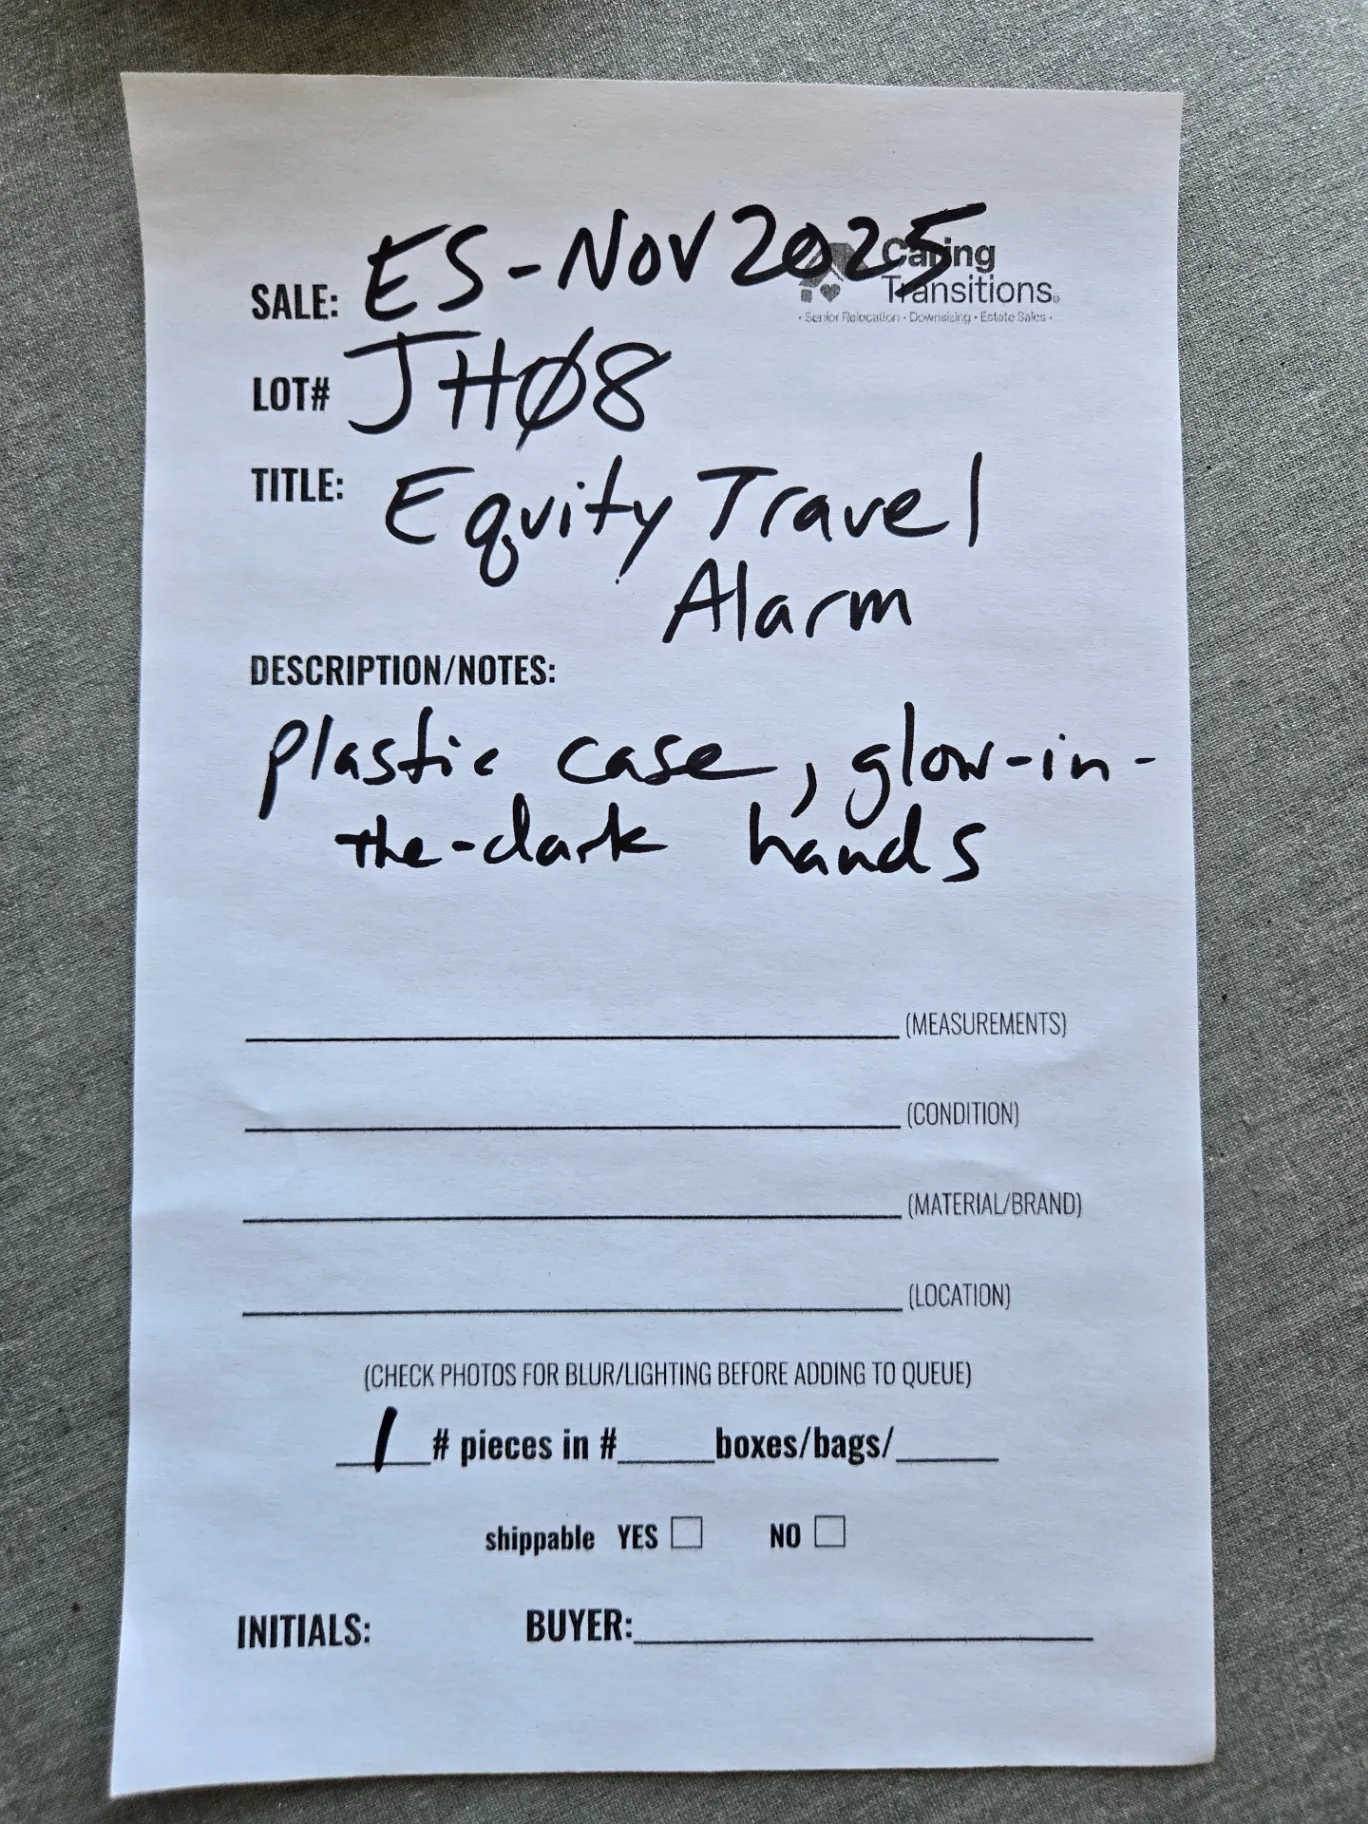 SALE: ES-Nov 2025
Caring
Transitions®
• Senior Relocation • Downsizing • Estate Sales •
LOT# JHØ8
TITLE: Equity Travel
Alarm
DESCRIPTION/NOTES:
plastic case, glow-in-
the-dark hands
(MEASUREMENTS)
(CONDITION)
(MATERIAL/BRAND)
(LOCATION)
(CHECK PHOTOS FOR BLUR/LIGHTING BEFORE ADDING TO QUEUE)
1 # pieces in #____boxes/bags/____
shippable YES ☐ NO ☐
INITIALS: BUYER:____